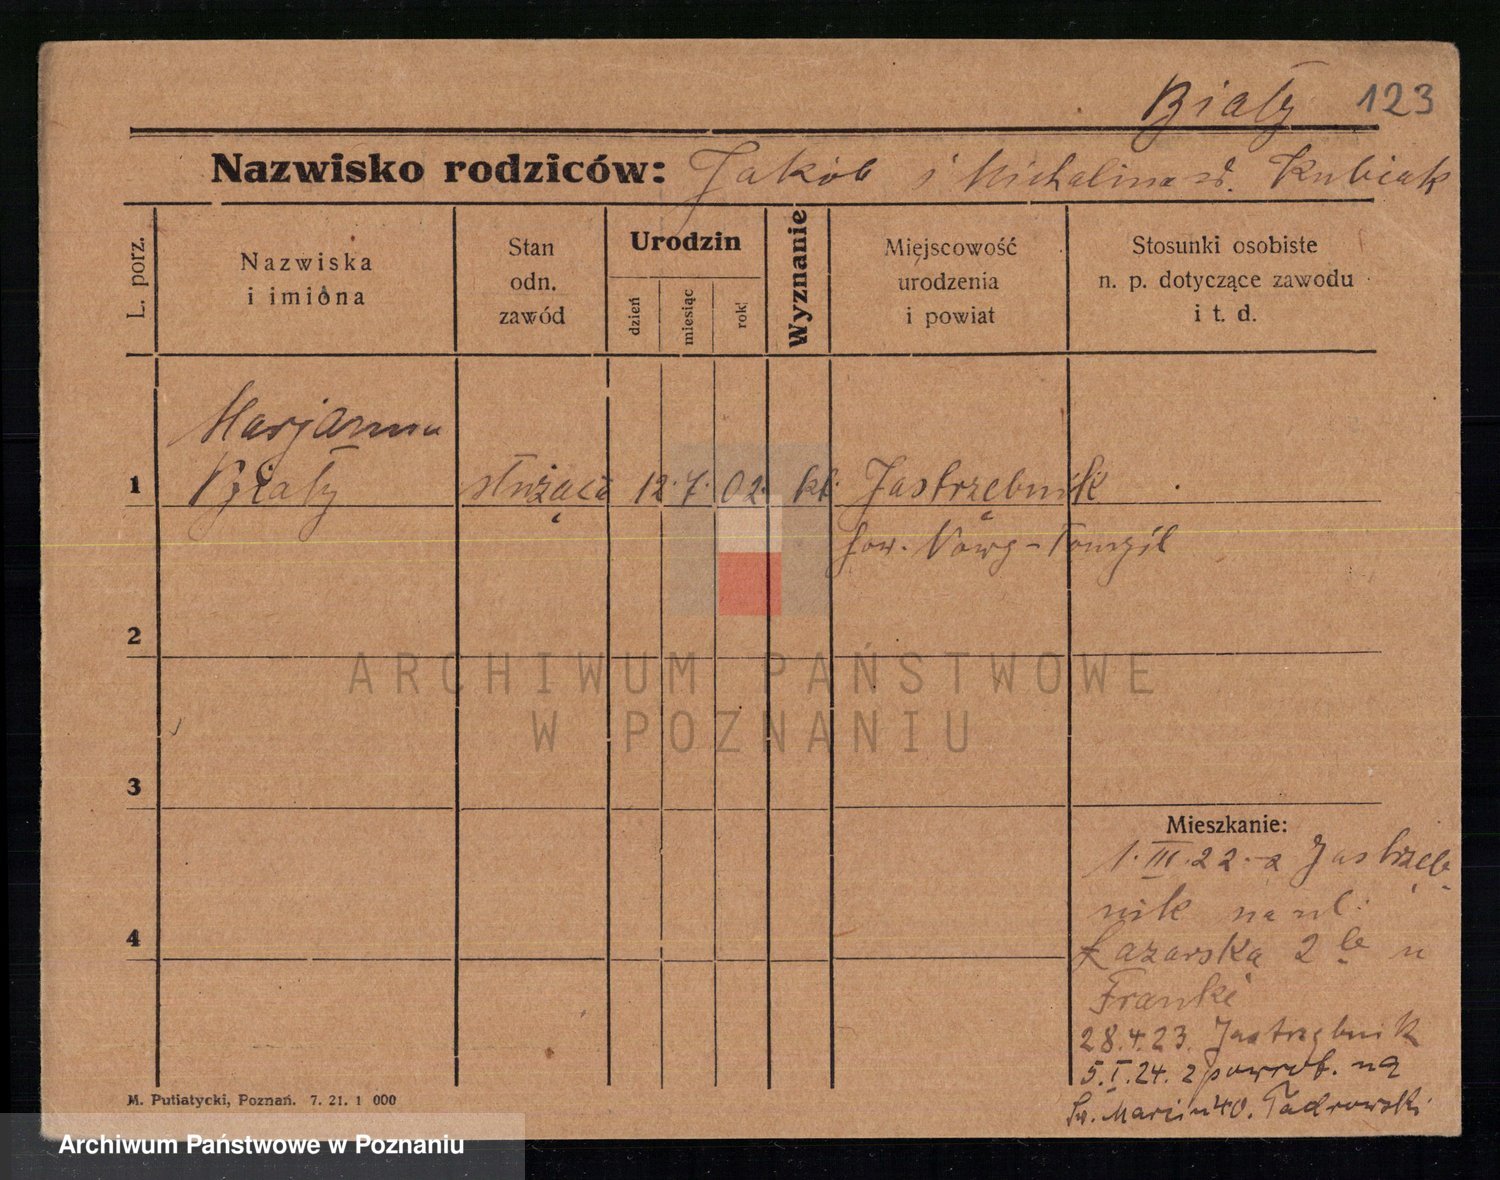 Biały 123
Nazwisko rodziców: Jakób i Michalina zd. Kubiak
L. porz.
Nazwiska
i imiona
Stan
odn.
zawód
Urodzin
dzień
miesiąc
rok
Wyznanie
Miejscowość
urodzenia
i powiat
Stosunki osobiste
n. p. dotyczące zawodu
i t. d.
Marjanna
1 Biały służąca 12. 7. 02. kt. Jastrzębnik
pow. Nowy-Tomyśl
2
ARCHIWUM PAŃSTWOWE
W POZNANIU
3
Mieszkanie:
1. III. 22. z Jastrzęb-
nik na ul.
4
Łazarska 2 u
Franke
28.4.23. Jastrzębnik
5.I.24. z powrot. na
Św. Marcin 40.
M. Putiatycki, Poznań. 7. 21. 1 000
Archiwum Państwowe w Poznaniu